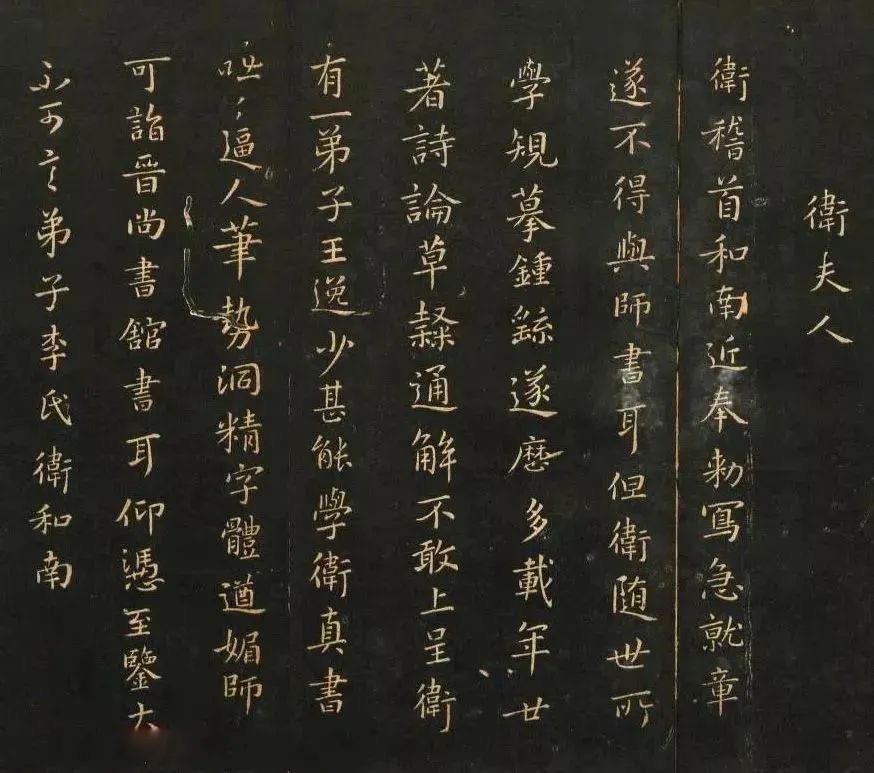 衛夫人
衛稽首和南近奉勑寫急就章
遂不得與師書耳但衛随世所
學規摹鍾繇遂歷多載年廿
著詩論草隸通解不敢上呈衛
有一弟子王逸少甚能學衛真書
咄〻逼人筆勢洞精字體遒媚師
可詣晉尚書館書耳仰憑至鑒大
不可言弟子李氏衛和南